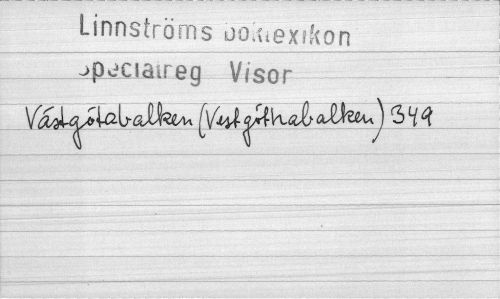 Linnströms boklexikon
Specialreg Visor
Västgötabalken (Vestgöthabalken) 349